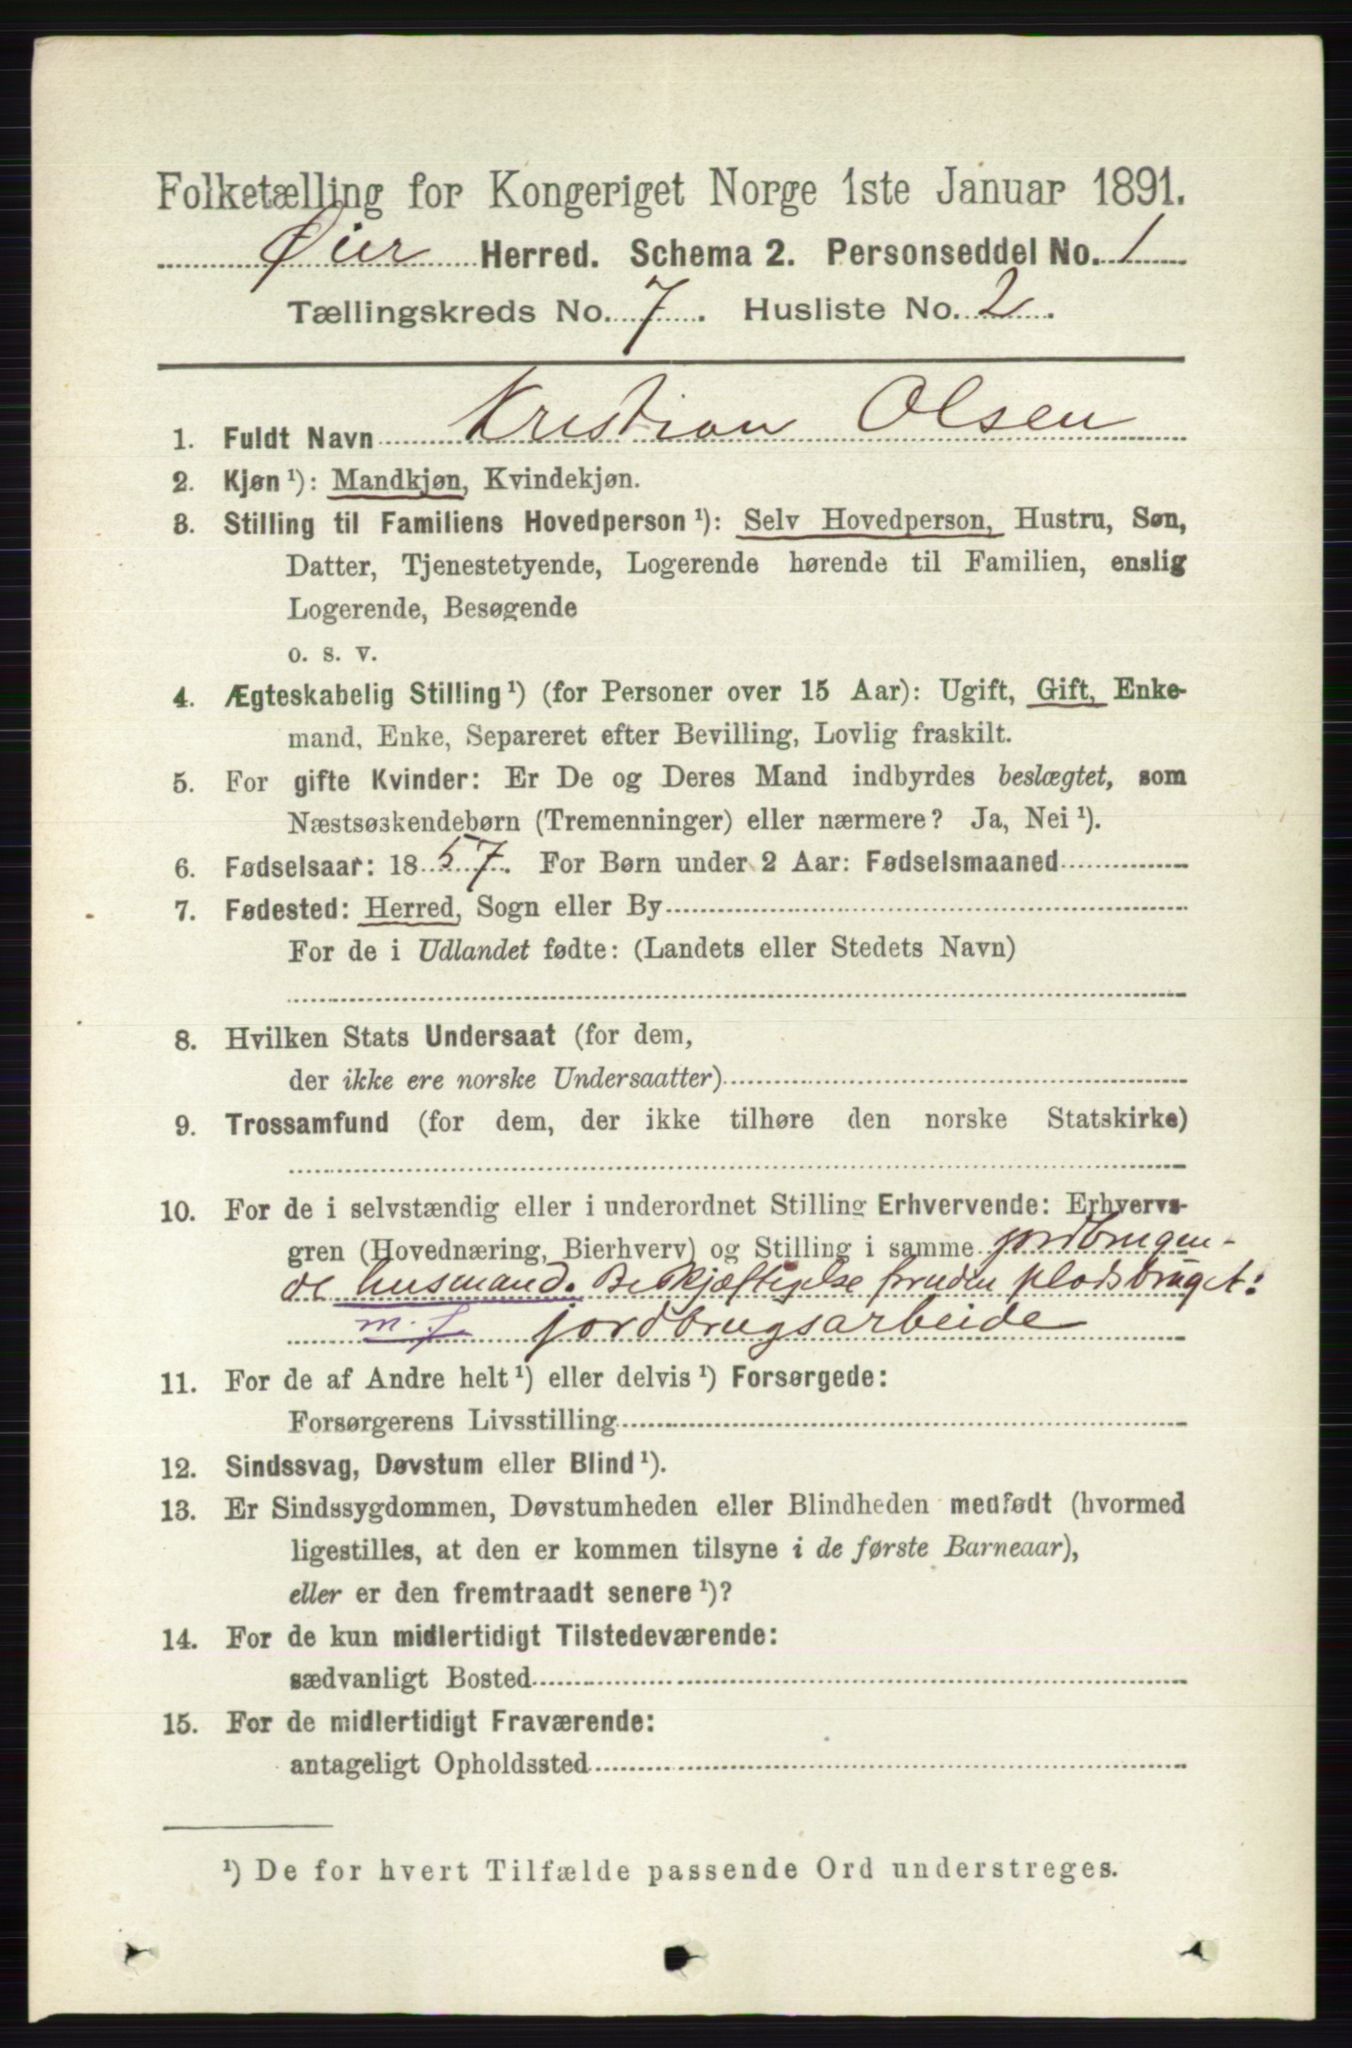 Folketælling for Kongeriget Norge 1ste Januar 1891.
Øier Herred. Schema 2. Personseddel No. 1
Tællingskreds No. 7. Husliste No. 2.
1. Fuldt Navn Kristian Olsen
2. Kjøn ¹): Mandkjøn, Kvindekjøn.
3. Stilling til Familiens Hovedperson ¹): Selv Hovedperson, Hustru, Søn,
Datter, Tjenestetyende, Logerende hørende til Familien, enslig
Logerende, Besøgende
o. s. v.
4. Ægteskabelig Stilling ¹) (for Personer over 15 Aar): Ugift, Gift, Enke-
mand, Enke, Separeret efter Bevilling, Lovlig fraskilt.
5. For gifte Kvinder: Er De og Deres Mand indbyrdes beslægtet, som
Næstsøskendebørn (Tremenninger) eller nærmere? Ja, Nei ¹).
6. Fødselsaar: 1857. For Børn under 2 Aar: Fødselsmaaned
7. Fødested: Herred, Sogn eller By
For de i Udlandet fødte: (Landets eller Stedets Navn)
8. Hvilken Stats Undersaat (for dem,
der ikke ere norske Undersaatter)
9. Trossamfund (for dem, der ikke tilhøre den norske Statskirke)
10. For de i selvstændig eller i underordnet Stilling Erhvervende: Erhvervs-
gren (Hovednæring, Bierhverv) og Stilling i samme jordbrugen-
de husmand. Beskjæftigelse foruden pladsbruget:
m. f. jordbrugsarbeide
11. For de af Andre helt ¹) eller delvis ¹) Forsørgede:
Forsørgerens Livsstilling
12. Sindssvag, Døvstum eller Blind ¹).
13. Er Sindssygdommen, Døvstumheden eller Blindheden medfødt (hvormed
ligestilles, at den er kommen tilsyne i de første Barneaar),
eller er den fremtraadt senere ¹)?
14. For de kun midlertidigt Tilstedeværende:
sædvanligt Bosted
15. For de midlertidigt Fraværende:
antageligt Opholdssted
¹) De for hvert Tilfælde passende Ord understreges.